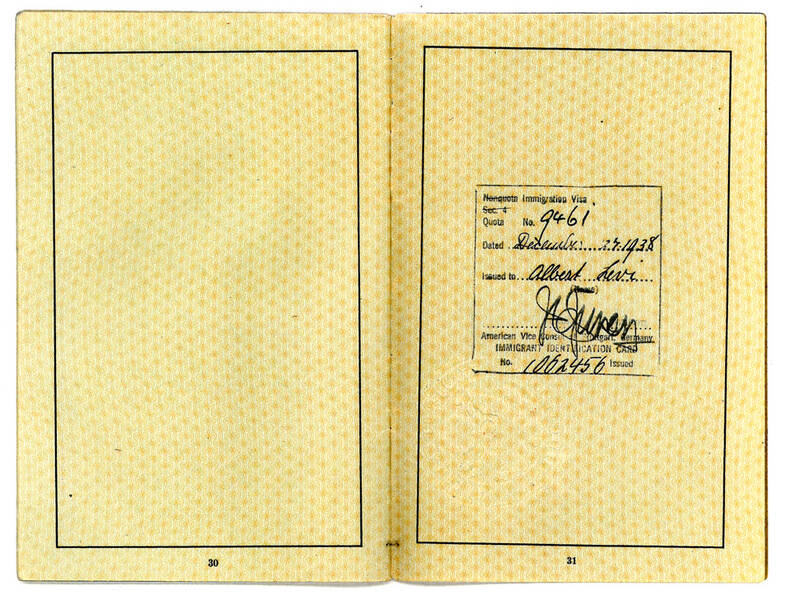 Nonquota Immigration Visa
Sec. 4
Quota No. 9461
Dated December 27, 1938
Issued to Albert Levi
(Name)
American Vice Consul Stuttgart, Germany
IMMIGRANT IDENTIFICATION CARD
No. 1062456 Issued
30
31